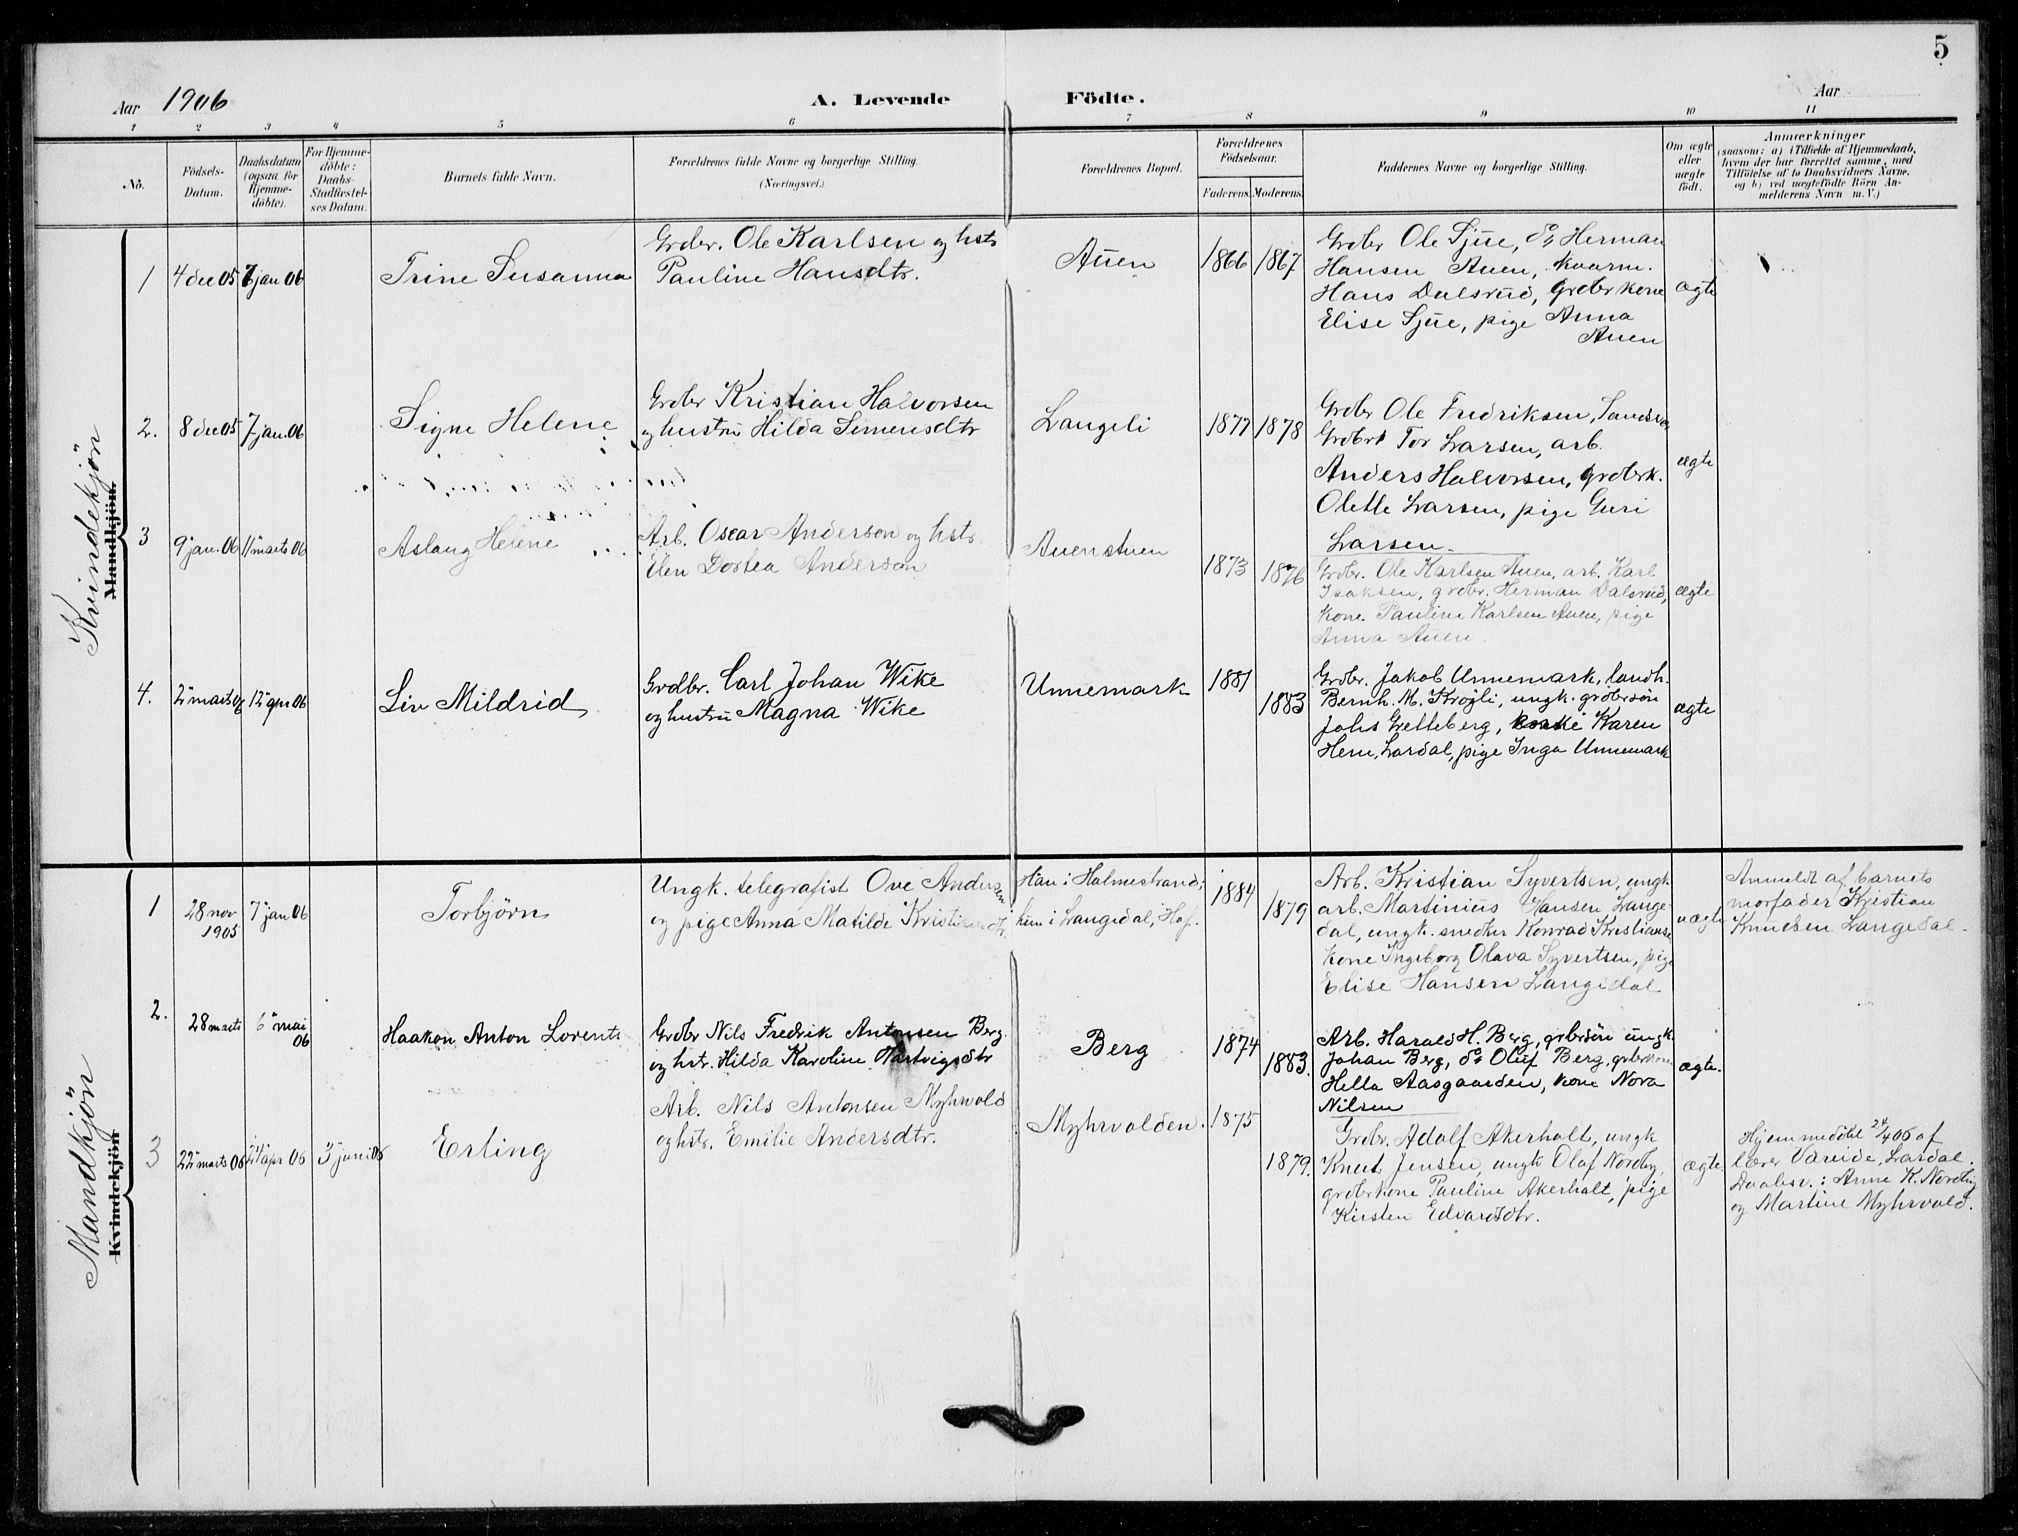 5
Aar 1906
A. Levende Födte.
Aar
1 2 3 4 5 6 7 8 9 10 11
No.
Födsels-Datum.
Daabsdatum (ogsaa for Hjemme-döbte).
For Hjemme-döbte: Daabs-Stadfæstel-ses Datum.
Barnets fulde Navn.
Forældrenes fulde Navne og borgerlige Stilling. (Næringsvei.)
Forældrenes Bopæl.
Forældrenes Födselsaar.
Faderens. Moderens.
Faddernes Navne og borgerlige Stilling.
Om ægte eller uægte födt.
Anmærkninger
(saasom: a) i Tilfælde af Hjemmedaab, hvem der har forrettet samme, med Tilföielse af to Daabsvidners Navne, og b) ved uægtefödte Börn An-melderens Navn m. V.)
Kvindekjøn
Mandkjön.
1 4 dec 05 7 jan 06 Trine Susanna
Grdbr. Ole Karlsen og hstr
Pauline Hansdtr.
Auen 1866 1867
Grdbr Ole Sjue, do Herman
Hansen Auen, kaarm.
Hans Dalsrud, grdbrkone
Elise Sjue, pige Anna
Auen
ægte
2. 8 dec 05 7 jan. 06 Signe Helene
Grdbr Kristian Halvorsen
og hustru Hilda Simensdtr
Langeli 1877 1878
Grdbr Ole Fredriksen,
Grdbr Tor Larsen, arb.
Anders Halvorsen, grdbrk.
Olette Larsen, pige Guri
Larsen.
ægte
3 9 jan. 06 11 marts 06 Aslaug Helene
Arb. Oscar Anderson og hstr.
Elen Dortea Anderson
Auenstuen 1873 1876
Grdbr. Ole Karlsen Auen, arb. Karl
Isaksen, grdbr. Herman Dalsrud,
kone Pauline Karlsen Auen, pige
Anna Auen.
ægte
4. 2 marts 06 12 apr 06 Liv Mildrid
Grdbr. Carl Johan Wike
og hustru Magna Wike
Unnemark 1881 1883
Grdbr. Jakob Unnemark, landh.
Bernh. M. Krøgli, ungk. grdbrsøn
Johs Gretteberg, Karen
Hem, Lardal, pige Inga Unnemark
ægte
Mandkjøn
Kvindekjön
1 28 nov 1905 7 jan 06 Torbjørn
Ungk. telegrafist Ove Andersen
og pige Anna Matilde
Han i Holmestrand;
hun i Langedal, Hof.
1884 1879
Arb. Kristian Syvertsen, ungk.
arb. Martinius Hansen Lange-
dal, ungk. snedker Konrad Kristianse
kone Ingeborg Olava Syvertsen, pige
Elise Hansen Langedal
uægte
Anmeldt af barnets
morfader Kristian
Knudsen Langedal.
2. 28 marts 6 mai 06 Haakon Anton Lorents
Grdbr Nils Fredrik Antonsen Berg
og hstr. Hilda Karoline Hartvigsdtr
Berg 1874 1883.
Arb. Harald H. Berg, grbrsön ungk
Johan Berg, do Oluf Berg, grbrkone
Hella Aasgaarden, kone Nora
Nilsen
ægte.
3 22 marts 06 24 apr 06 3 juni 06 Erling
Arb. Nils Antonsen Myhrvold
og hstr. Emilie Andersdtr.
Myhrvolden. 1875 1879.
Grdbr. Adolf Akerholt, ungk
Knut Jensen, ungk Olaf Nordby,
grdbrkone Pauline Akerholt, pige
Kirsten Edvardsdtr.
ægte
Hjemmedøbt 24/4 06 af
lærer Vareide, Lardal.
Daabsv.: Anne K. Nordby
og Martine Myhrvold.